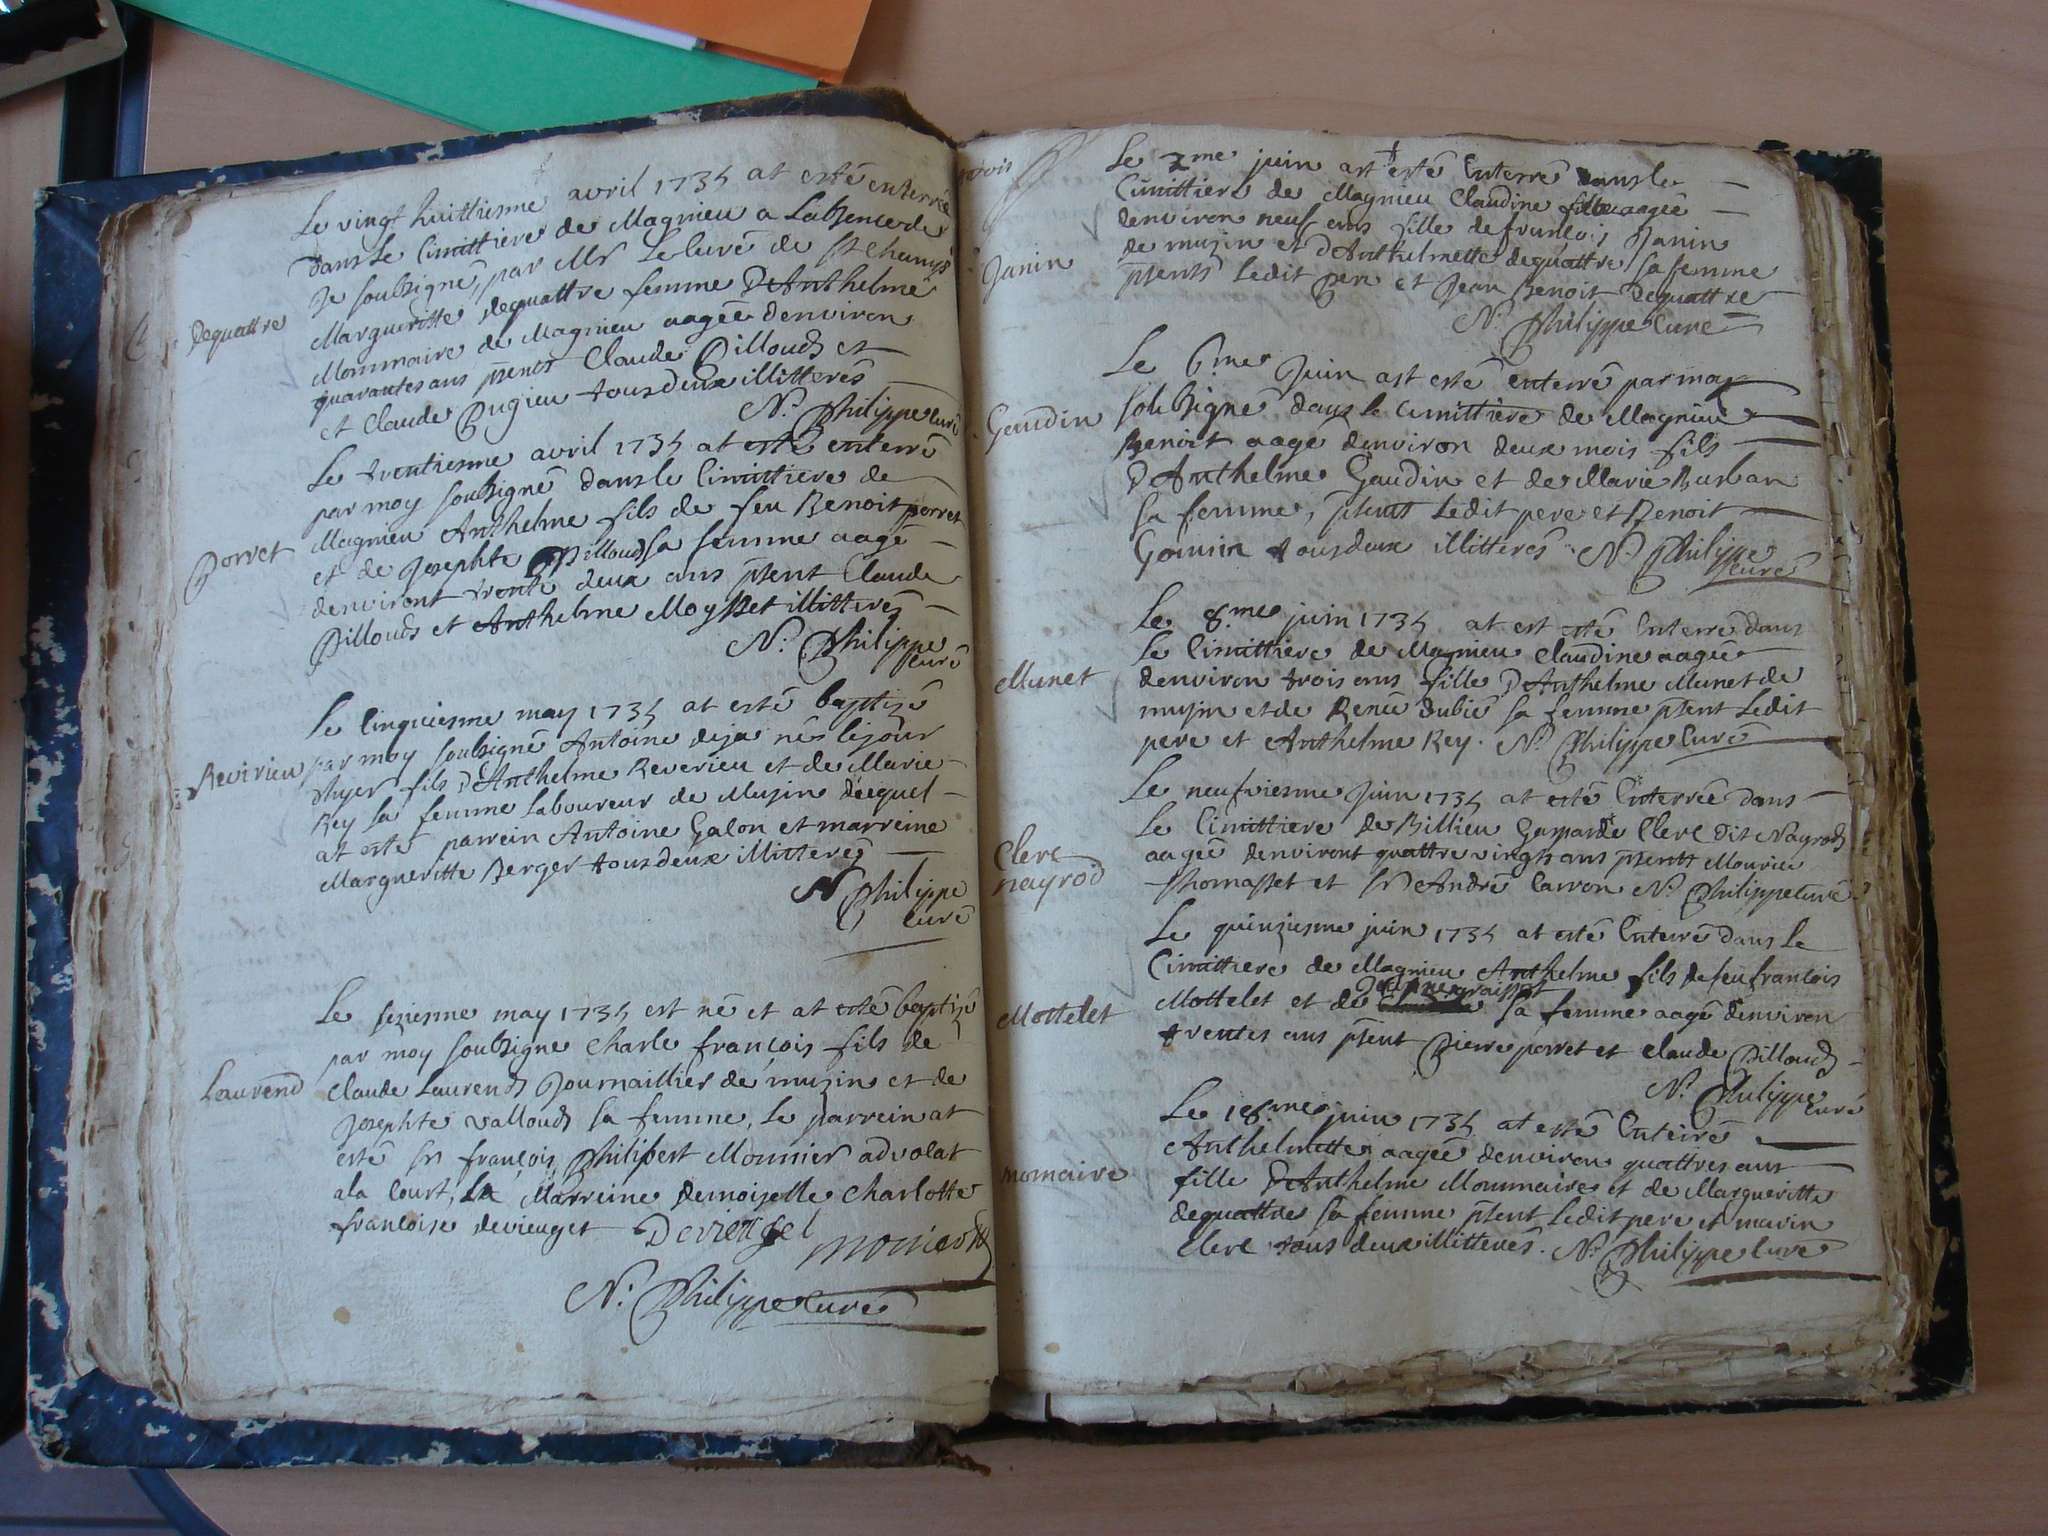 Le vingt huittiesme avril 1735 at esté enterrée
Dequattre
dans le Cimittiere de Magnieu a Labsence de
Je soubsigné, par Mr Le Curé de St Champs
Margueritte dequattre femme D'Anthelme
Mommaire de Magnieu aagée denviron
quarantes ans pñents Claude Pillouds et
et Claude Pugieu tous deux illitterés
N. Philippe Curé
Le trentiesme avril 1735 at esté enterré
Porret
par moy soubsigné dans le Cimittiere de
Magnieu Anthelme fils de feu Benoit porret
et de Josephte Pillouds sa femme aagé
denviront trente deux ans pñent Claude
Pillouds et Anthelme Moysset illitterés
N. Philippe
curé
Le Cinquiesme may 1735 at esté baptizé
Revirieu
par moy soubsigné Antoine deja nés le jour
d'hyer fils D'Anthelme Reverieu et de Marie
Rey sa femme Laboureur de Muzin dequel
at esté parrein Antoine Galon et marreine
Margueritte Berger tous deux illitterés
N Philippe
Curé
Le seziesme may 1735 est né et at esté baptizé
par moy soubsigne Charle françois fils de
Laurend
Claude Laurends Journaillier de muzin et de
Josephte vallouds sa femme, Le parrein at
esté sr françois Philibert Monnier advolat
ala Court, La Marreine demoiselle Charlotte
françoise devieuget Devieugel
N. Philippe Curé
Le 2me juin ast esté Enterré dans le
Cimittiere de Magnieu Claudine aagée
denviron neuf ans fille de françois Janin
Janin
de muzin et D'Anthelmette dequattre sa femme
pñents Ledit pere et Jean Benoit Dequattre
N. Philippe Curé
Le 6.me Juin ast esté enterré par moy
Gaudin
soubsigné dans le Cimittiere de Magnieu
Benoit aagé denviron deux mois fils
D'Anthelme Gaudin et de Marie Burban
sa femme, pñents Ledit pere et Benoit
Gonnin tous deux illitterés N. Philippe
curé
Le 8.me juin 1735 at est esté Enterré dans
Le Cimittiere de Magnieu Claudine aagée
Munet
denviron trois ans fille D'Anthelme Munet de
muzin et de Renée dubié sa femme pñent Ledit
pere et Anthelme Rey. N. Philippe Curé
Le neufviesme Juin 1735 at esté Enterrée dans
Le Cimittiere de Billieu Gasparde Clerc dit Nayrods
Clerc
nayrod
aagée denviront quattre vingts ans pñents Mourice
Thomasset et sr André Carron N. Philippe Curé
Le quinziesme juin 1735 at esté Enterré dans Le
Cimittiere de Magnieu Anthelme fils de feu françois
Mottelet
Mottelet et de sa femme aagé denviron
trentes ans pñent Pierre porret et Claude Pillouds
N. Philippe
curé
Le 18.me juin 1735 at esté Enterré
Anthelmette aagée denviron quattres ans
momaire
fille D'Anthelme Mommaire et de Margueritte
dequattre sa femme pñent Ledit pere et marin
Clerc tous deux illitterés. N. Philippe Curé